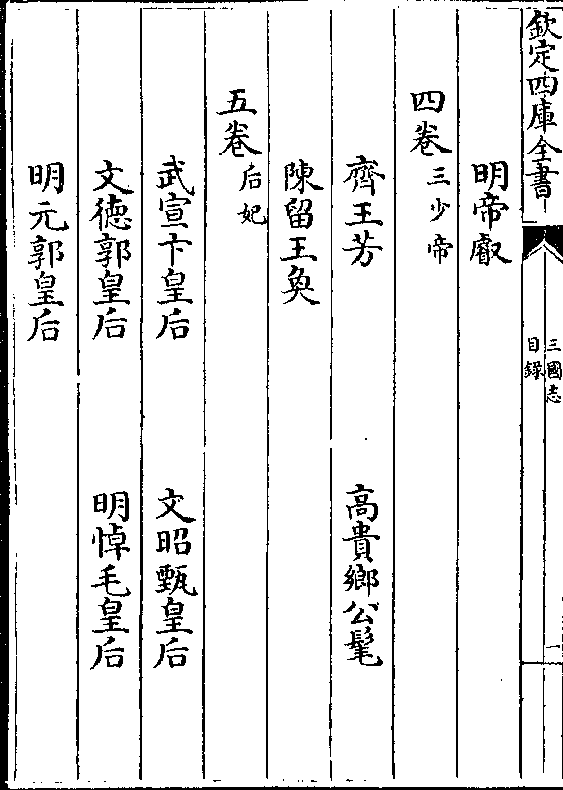 欽定四庫全書
三國志
目録
一
明帝叡
四卷三少帝
齊王芳 高貴鄉公髦
陳留王奐
五卷后妃
武宣卞皇后 文昭甄皇后
文德郭皇后 明悼毛皇后
明元郭皇后